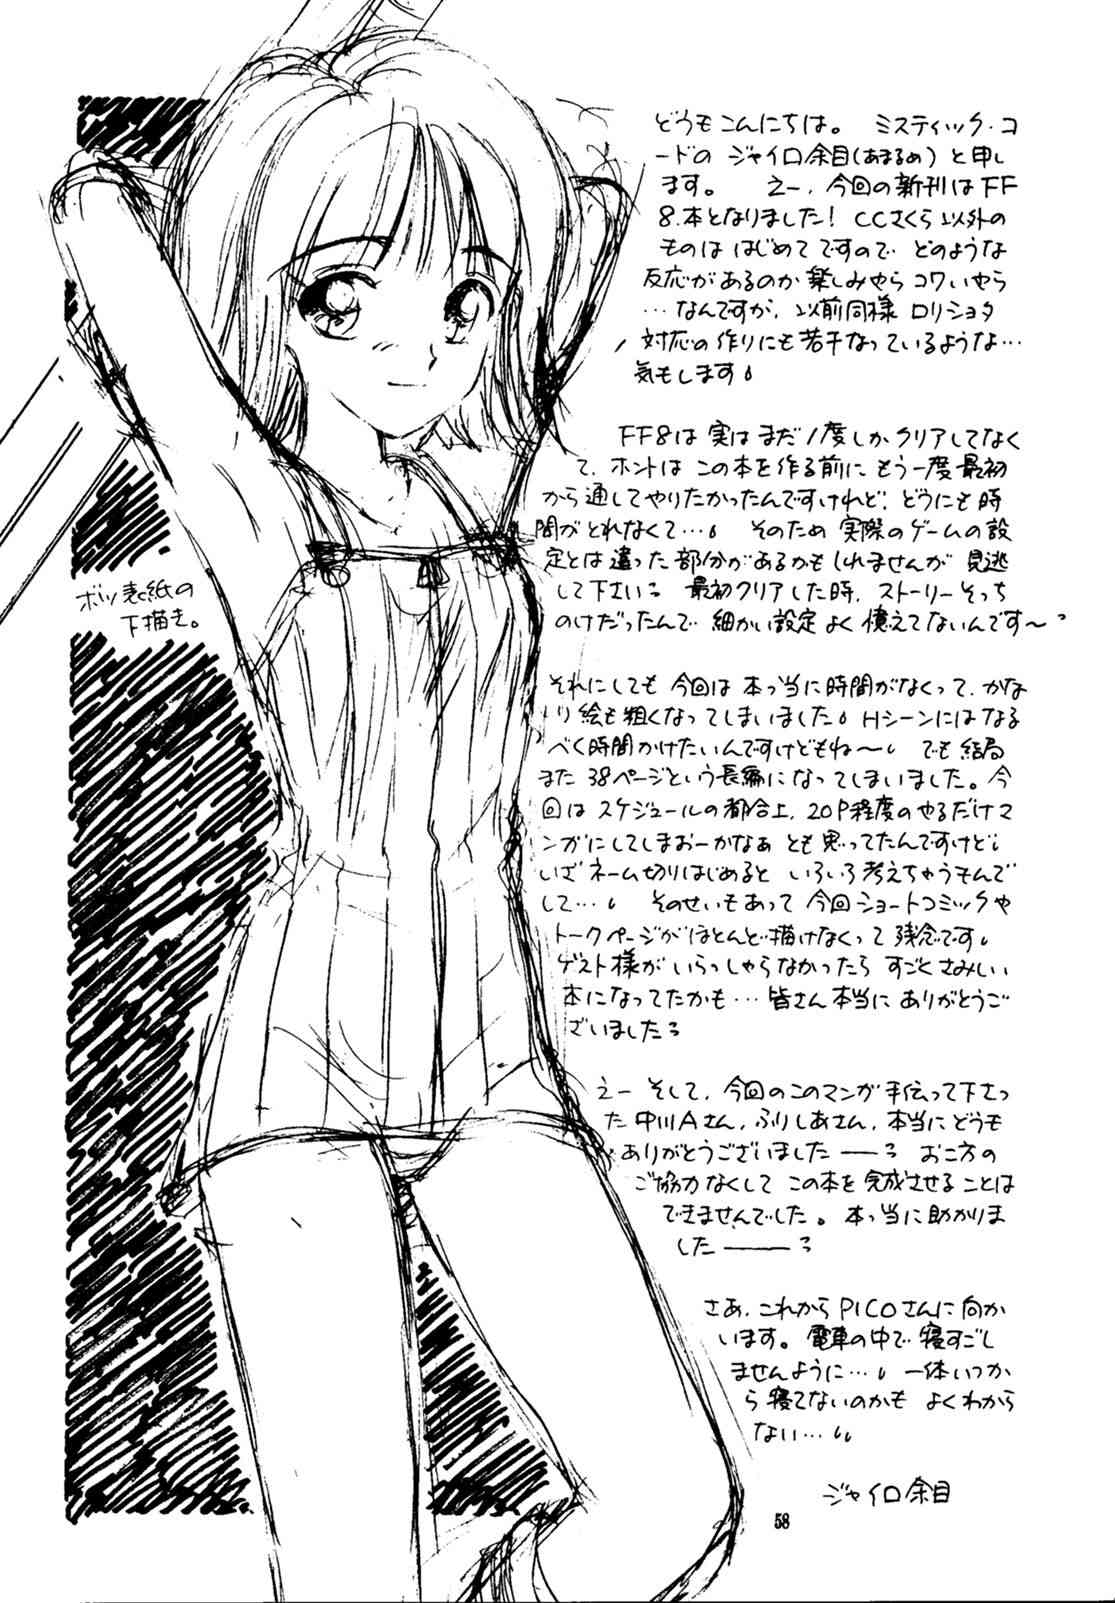 どうもこんにちは。 ミスティック・コ
ードの ジャイロ余目(あまるめ)と申し
ます。 えー、今回の新刊はFF
8本となりました! CCさくら以外の
ものは はじめてですので どのような
反応があるのか楽しみやら コワいやら
…なんですが、以前同様 ロリショタ
対応の作りにも若干なっているような…
気もします。
FF8は 実は まだ1度しかクリアしてなく
て、ホントは この本を作る前に もう一度 最初
から通してやりたかったんですけれど、どうにも時
間がとれなくて…。 そのため 実際のゲームの設
定とは違った部分があるかもしれませんが 見逃
して下さいっ 最初クリアした時、ストーリーそっち
のけだったんで 細かい設定 よく憶えてないんです〜っ
ボツ表紙の
下描き。
それにしても 今回は 本っ当に時間がなくって、かな
り絵も粗くなってしまいました。Hシーンにはなる
べく時間かけたいんですけどもね〜。 でも 結局
また 38ページという長編になってしまいました。今
回は スケジュールの都合上、20P程度のやるだけマ
ンガにしてしまおーかなぁ とも思ってたんですけど、
いざネーム切りはじめると いろいろ考えちゃうもんで
して…。 そのせいもあって 今回ショートコミックや
トークページがほとんど描けなくって 残念です。
ゲスト様が いらっしゃらなかったら すごくさみしい
本になってたかも…皆さん本当に ありがとうご
ざいましたっ
えー そして、今回のこのマンガ手伝って下さっ
た 中川Aさん、ふりしあさん、本当にどうも
ありがとうございました——っ お二方の
ご協力なくして この本を 完成させることは
できませんでした。 本っ当に助かりま
した———っ
さあ、これからPICOさんに向か
います。電車の中で寝すごし
ませんように…。 一体いつか
ら 寝てないのかも よくわから
ない…。
ジャイロ余目
58